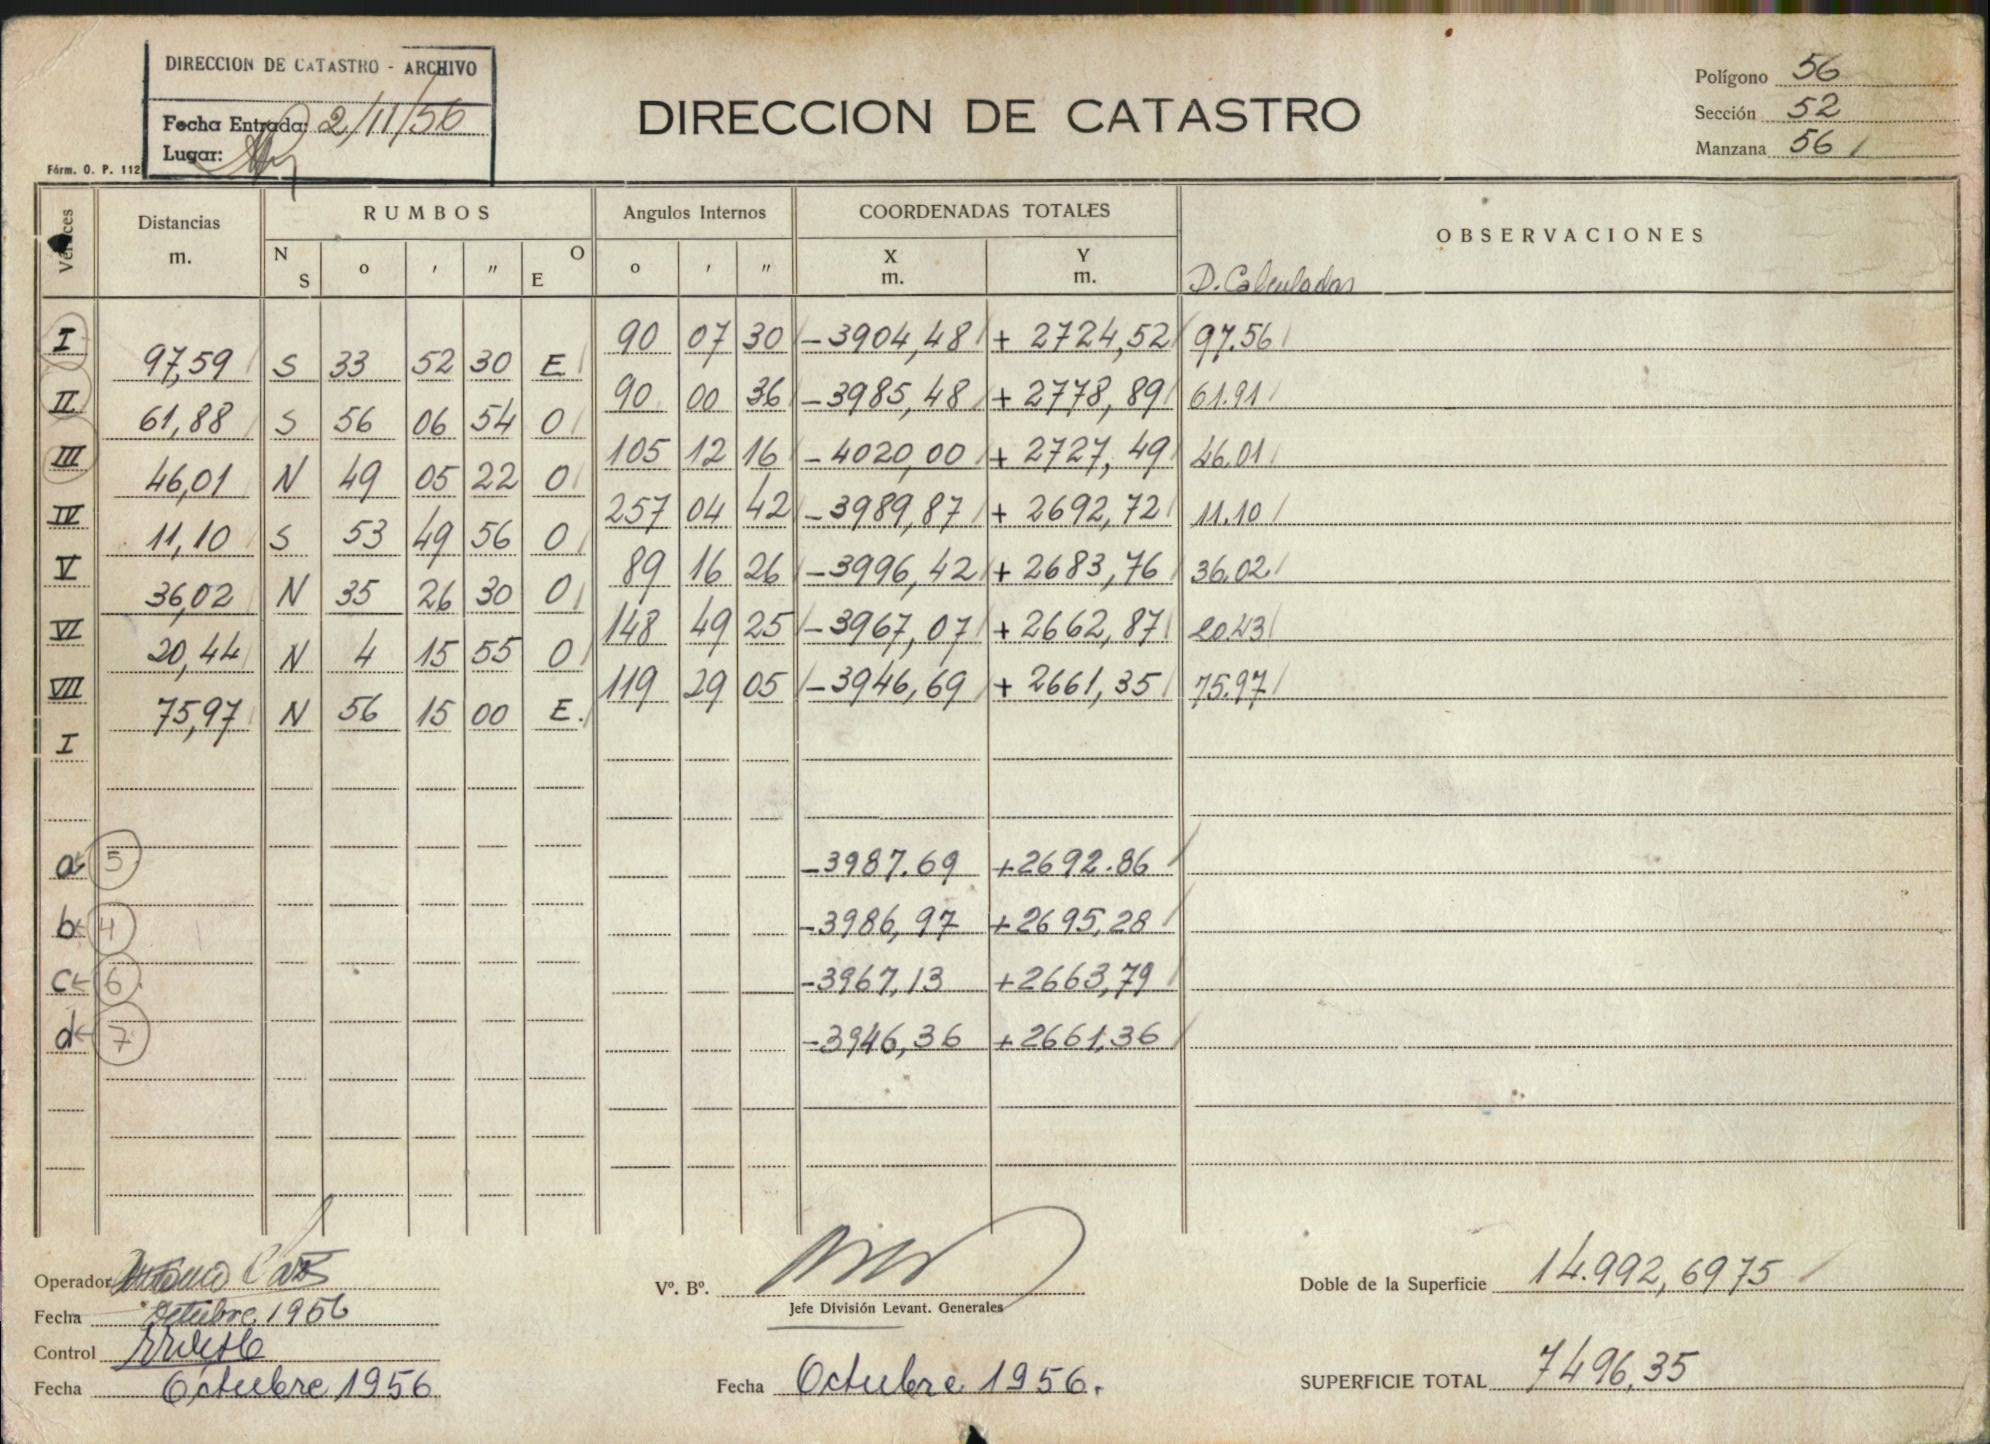 DIRECCION DE CATASTRO - ARCHIVO
Fecha Entrada: 2/11/56
Lugar:
Fórm. O. P. 112
DIRECCION DE CATASTRO
Polígono 56
Sección 52
Manzana 56
Vértices Distancias m. RUMBOS Angulos Internos COORDENADAS TOTALES OBSERVACIONES
N S o ' " O E o ' " X m. Y m. D. Calculadas
I 90 07 30 -3904,48 + 2724,52 97.56
97,59 S 33 52 30 E
II 90 00 36 -3985,48 + 2778,89 61.91
61,88 S 56 06 54 O
III 105 12 16 -4020,00 + 2727,49 46.01
46,01 N 49 05 22 O
IV 257 04 42 -3989,87 + 2692,72 11.10
11,10 S 53 49 56 O
V 89 16 26 -3996,42 + 2683,76 36.02
36,02 N 35 26 30 O
VI 148 49 25 -3967,07 + 2662,87 20.43
20,44 N 4 15 55 O
VII 119 29 05 -3946,69 + 2661,35 75.97
75,97 N 56 15 00 E.
I
a 5 -3987.69 +2692.86
b 4 -3986,97 +2695,28
c 6 -3967,13 +2663,79
d 7 -3946,36 +2661,36
Operador
Fecha Octubre 1956
Control
Fecha Octubre 1956
Vº. Bº.
Jefe División Levant. Generales
Fecha Octubre 1956.
Doble de la Superficie 14.992,6975
SUPERFICIE TOTAL 7496,35